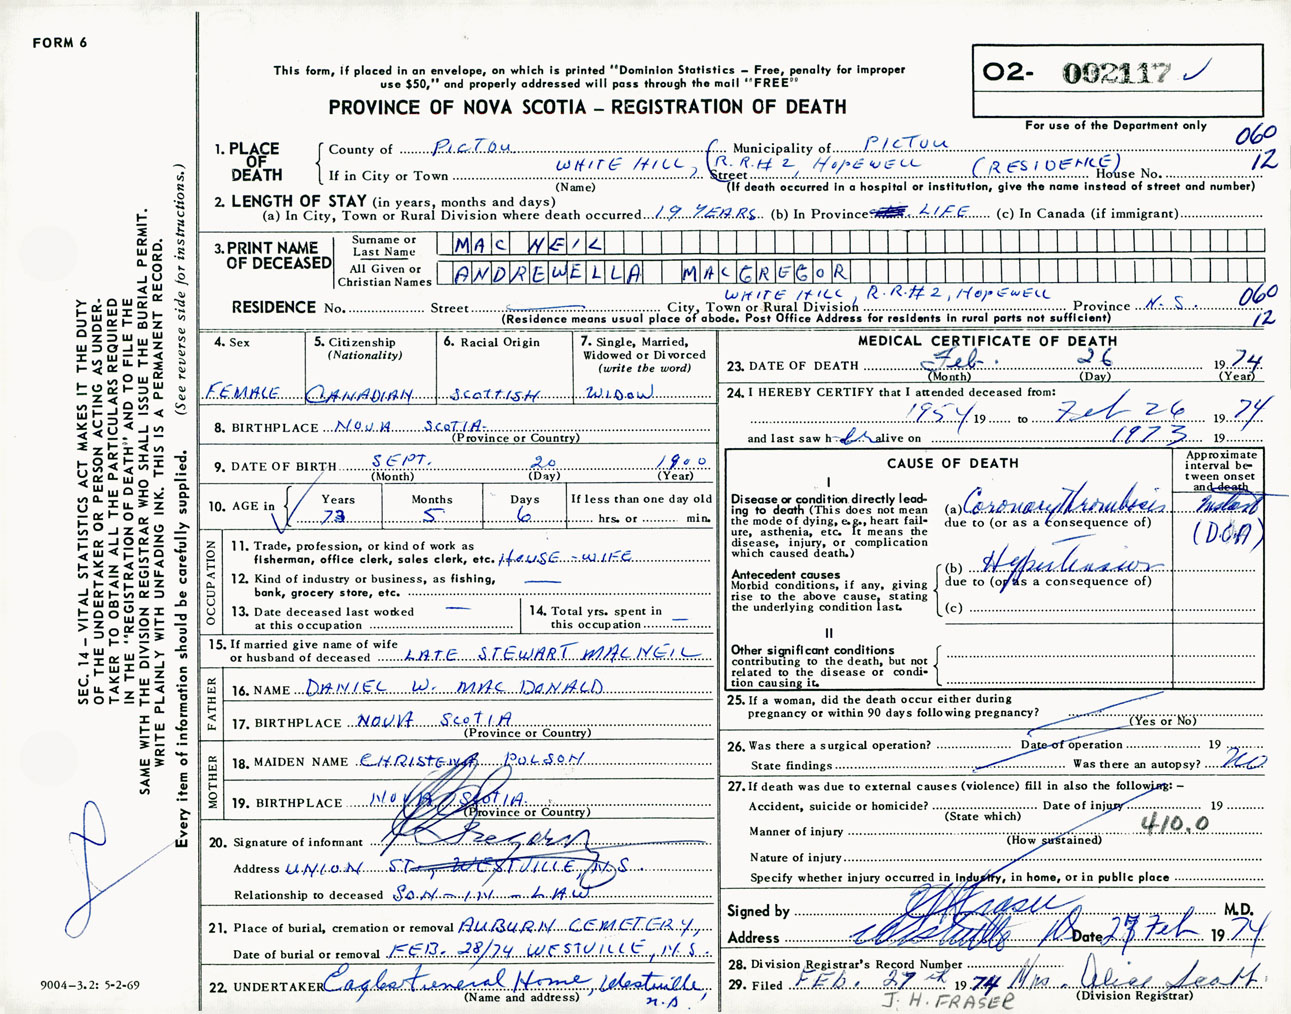 FORM 6
This form, if placed in an envelope, on which is printed "Dominion Statistics – Free, penalty for improper
use $50," and properly addressed will pass through the mail "FREE"
PROVINCE OF NOVA SCOTIA – REGISTRATION OF DEATH
O2- 002117 ✓
For use of the Department only
060
12
1. PLACE OF DEATH
County of PICTOU Municipality of PICTOU
If in City or Town WHITE HILL, R.R.#2, HOPEWELL (RESIDENCE) Street House No.
(Name) (If death occurred in a hospital or institution, give the name instead of street and number)
2. LENGTH OF STAY (in years, months and days)
(a) In City, Town or Rural Division where death occurred 19 YEARS (b) In Province LIFE (c) In Canada (if immigrant)
3. PRINT NAME OF DECEASED
Surname or Last Name MAC NEIL
All Given or Christian Names ANDREWELLA MACGREGOR
RESIDENCE No. Street City, Town or Rural Division WHITE HILL, R.R.#2, HOPEWELL Province N.S.
060
12
(Residence means usual place of abode. Post Office Address for residents in rural parts not sufficient)
4. Sex
FEMALE
5. Citizenship
(Nationality)
CANADIAN
6. Racial Origin
SCOTTISH
7. Single, Married,
Widowed or Divorced
(write the word)
WIDOW
8. BIRTHPLACE NOVA SCOTIA
(Province or Country)
9. DATE OF BIRTH SEPT. 20 1900
(Month) (Day) (Year)
10. AGE in
Years Months Days If less than one day old
73 5 6 hrs. or min.
OCCUPATION
11. Trade, profession, or kind of work as
fisherman, office clerk, sales clerk, etc. HOUSE-WIFE
12. Kind of industry or business, as fishing,
bank, grocery store, etc. —
13. Date deceased last worked
at this occupation —
14. Total yrs. spent in
this occupation —
15. If married give name of wife
or husband of deceased LATE STEWART MACNEIL
FATHER
16. NAME DANIEL W. MAC DONALD
17. BIRTHPLACE NOVA SCOTIA
(Province or Country)
MOTHER
18. MAIDEN NAME CHRISTENA POLSON
19. BIRTHPLACE NOVA SCOTIA
(Province or Country)
20. Signature of informant
Address UNION ST., WESTVILLE, N.S.
Relationship to deceased SON-IN-LAW
21. Place of burial, cremation or removal AUBURN CEMETERY,
Date of burial or removal FEB. 28/74 WESTVILLE, N.S.
22. UNDERTAKER Eagles Funeral Home, Westville
N.S.
(Name and address)
MEDICAL CERTIFICATE OF DEATH
23. DATE OF DEATH Feb. 26 1974
(Month) (Day) (Year)
24. I HEREBY CERTIFY that I attended deceased from:
1954 19 to Feb 26 1974
and last saw her alive on 1973 19
CAUSE OF DEATH
Approximate
interval be-
tween onset
and death
I
Disease or condition directly lead-
ing to death (This does not mean
the mode of dying, e.g., heart fail-
ure, asthenia, etc. It means the
disease, injury, or complication
which caused death.)
(a) Coronary Thrombosis Instant
due to (or as a consequence of)
(D.O.A)
Antecedent causes
Morbid conditions, if any, giving
rise to the above cause, stating
the underlying condition last.
(b) Hypertension
due to (or as a consequence of)
(c)
II
Other significant conditions
contributing to the death, but not
related to the disease or condi-
tion causing it.
25. If a woman, did the death occur either during
pregnancy or within 90 days following pregnancy?
(Yes or No)
26. Was there a surgical operation? Date of operation 19
State findings Was there an autopsy? No
27. If death was due to external causes (violence) fill in also the following: –
Accident, suicide or homicide? Date of injury 19
(State which)
Manner of injury 410.0
(How sustained)
Nature of injury
Specify whether injury occurred in industry, in home, or in public place
Signed by Fraser M.D.
Address Westville NS Date 27 Feb 1974
28. Division Registrar's Record Number
29. Filed FEB. 27th 1974 Mrs. Alice Scott
(Division Registrar)
J. H. FRASER
SEC. 14 – VITAL STATISTICS ACT MAKES IT THE DUTY
OF THE UNDERTAKER OR PERSON ACTING AS UNDER-
TAKER TO OBTAIN ALL THE PARTICULARS REQUIRED
IN THE "REGISTRATION OF DEATH" AND TO FILE THE
SAME WITH THE DIVISION REGISTRAR WHO SHALL ISSUE THE BURIAL PERMIT.
WRITE PLAINLY WITH UNFADING INK. THIS IS A PERMANENT RECORD.
Every item of information should be carefully supplied. (See reverse side for instructions.)
9004-3.2: 5-2-69